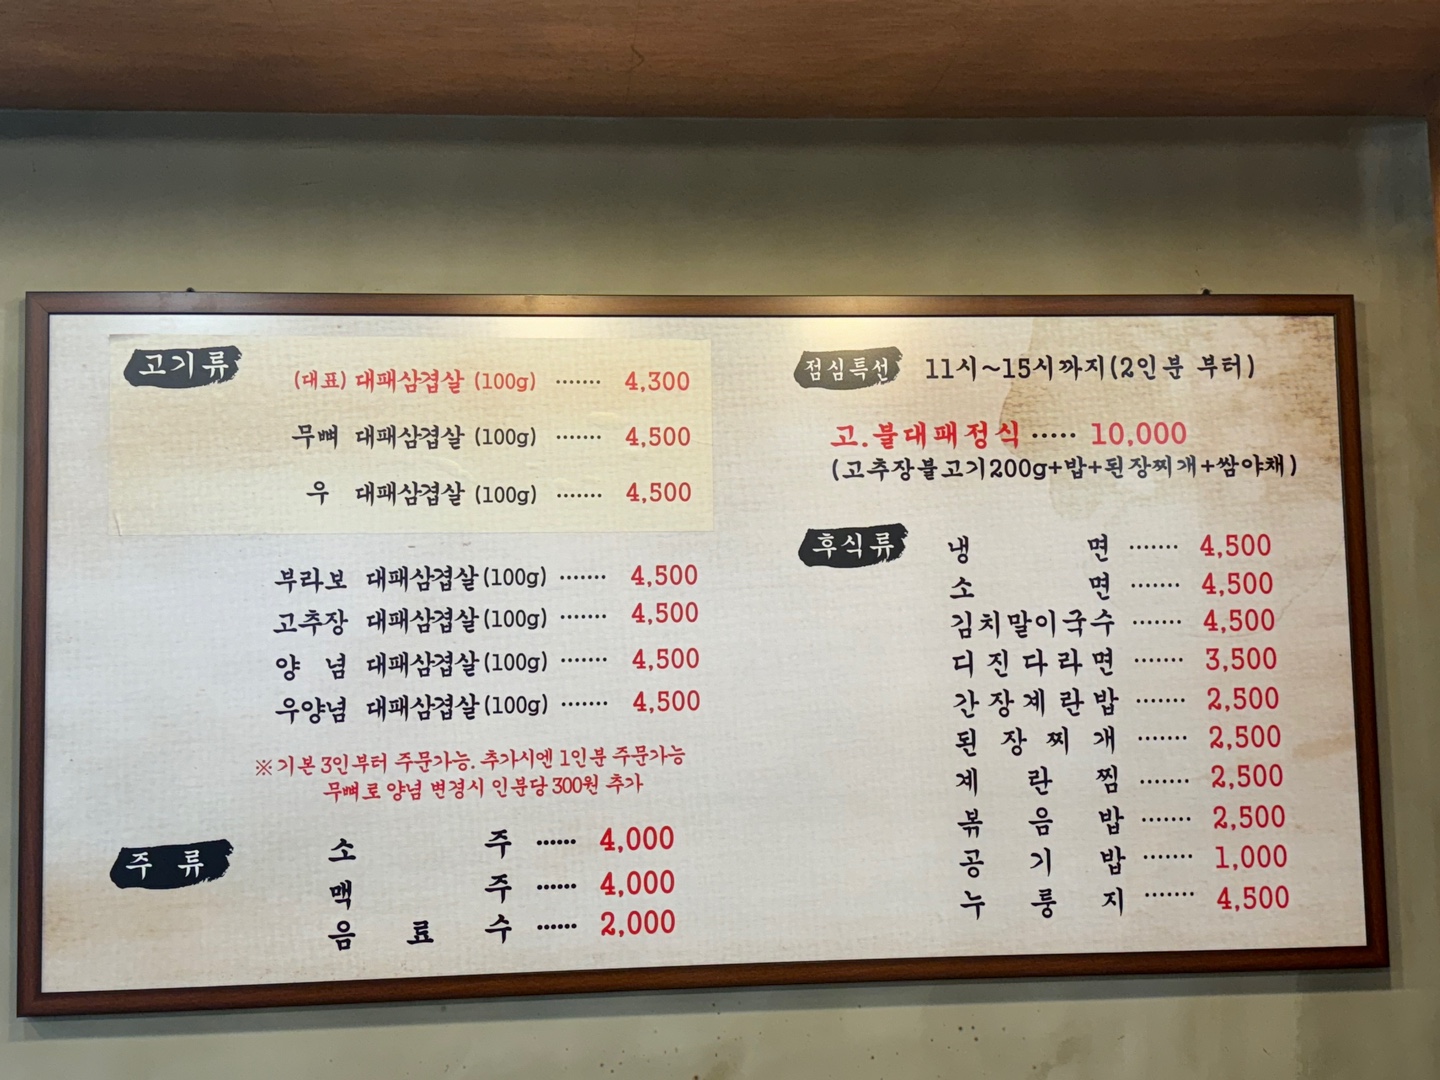 고기류
(대표) 대패삼겹살 (100g) ······· 4,300
무뼈 대패삼겹살 (100g) ······· 4,500
우 대패삼겹살 (100g) ······· 4,500
부라보 대패삼겹살 (100g) ······· 4,500
고추장 대패삼겹살 (100g) ······· 4,500
양 념 대패삼겹살 (100g) ······· 4,500
우양념 대패삼겹살 (100g) ······· 4,500
※ 기본 3인부터 주문가능. 추가시엔 1인분 주문가능
무뼈로 양념 변경시 인분당 300원 추가
주 류
소 주 ······ 4,000
맥 주 ······ 4,000
음 료 수 ······ 2,000
점심특선 11시~15시까지(2인분 부터)
고.불대패정식 ····· 10,000
(고추장불고기200g+밥+된장찌개+쌈야채)
후식류
냉 면 ······· 4,500
소 면 ······· 4,500
김치말이국수 ······· 4,500
디진다라면 ······· 3,500
간장계란밥 ······· 2,500
된 장 찌 개 ······· 2,500
계 란 찜 ······· 2,500
볶 음 밥 ······· 2,500
공 기 밥 ······· 1,000
누 룽 지 ······· 4,500